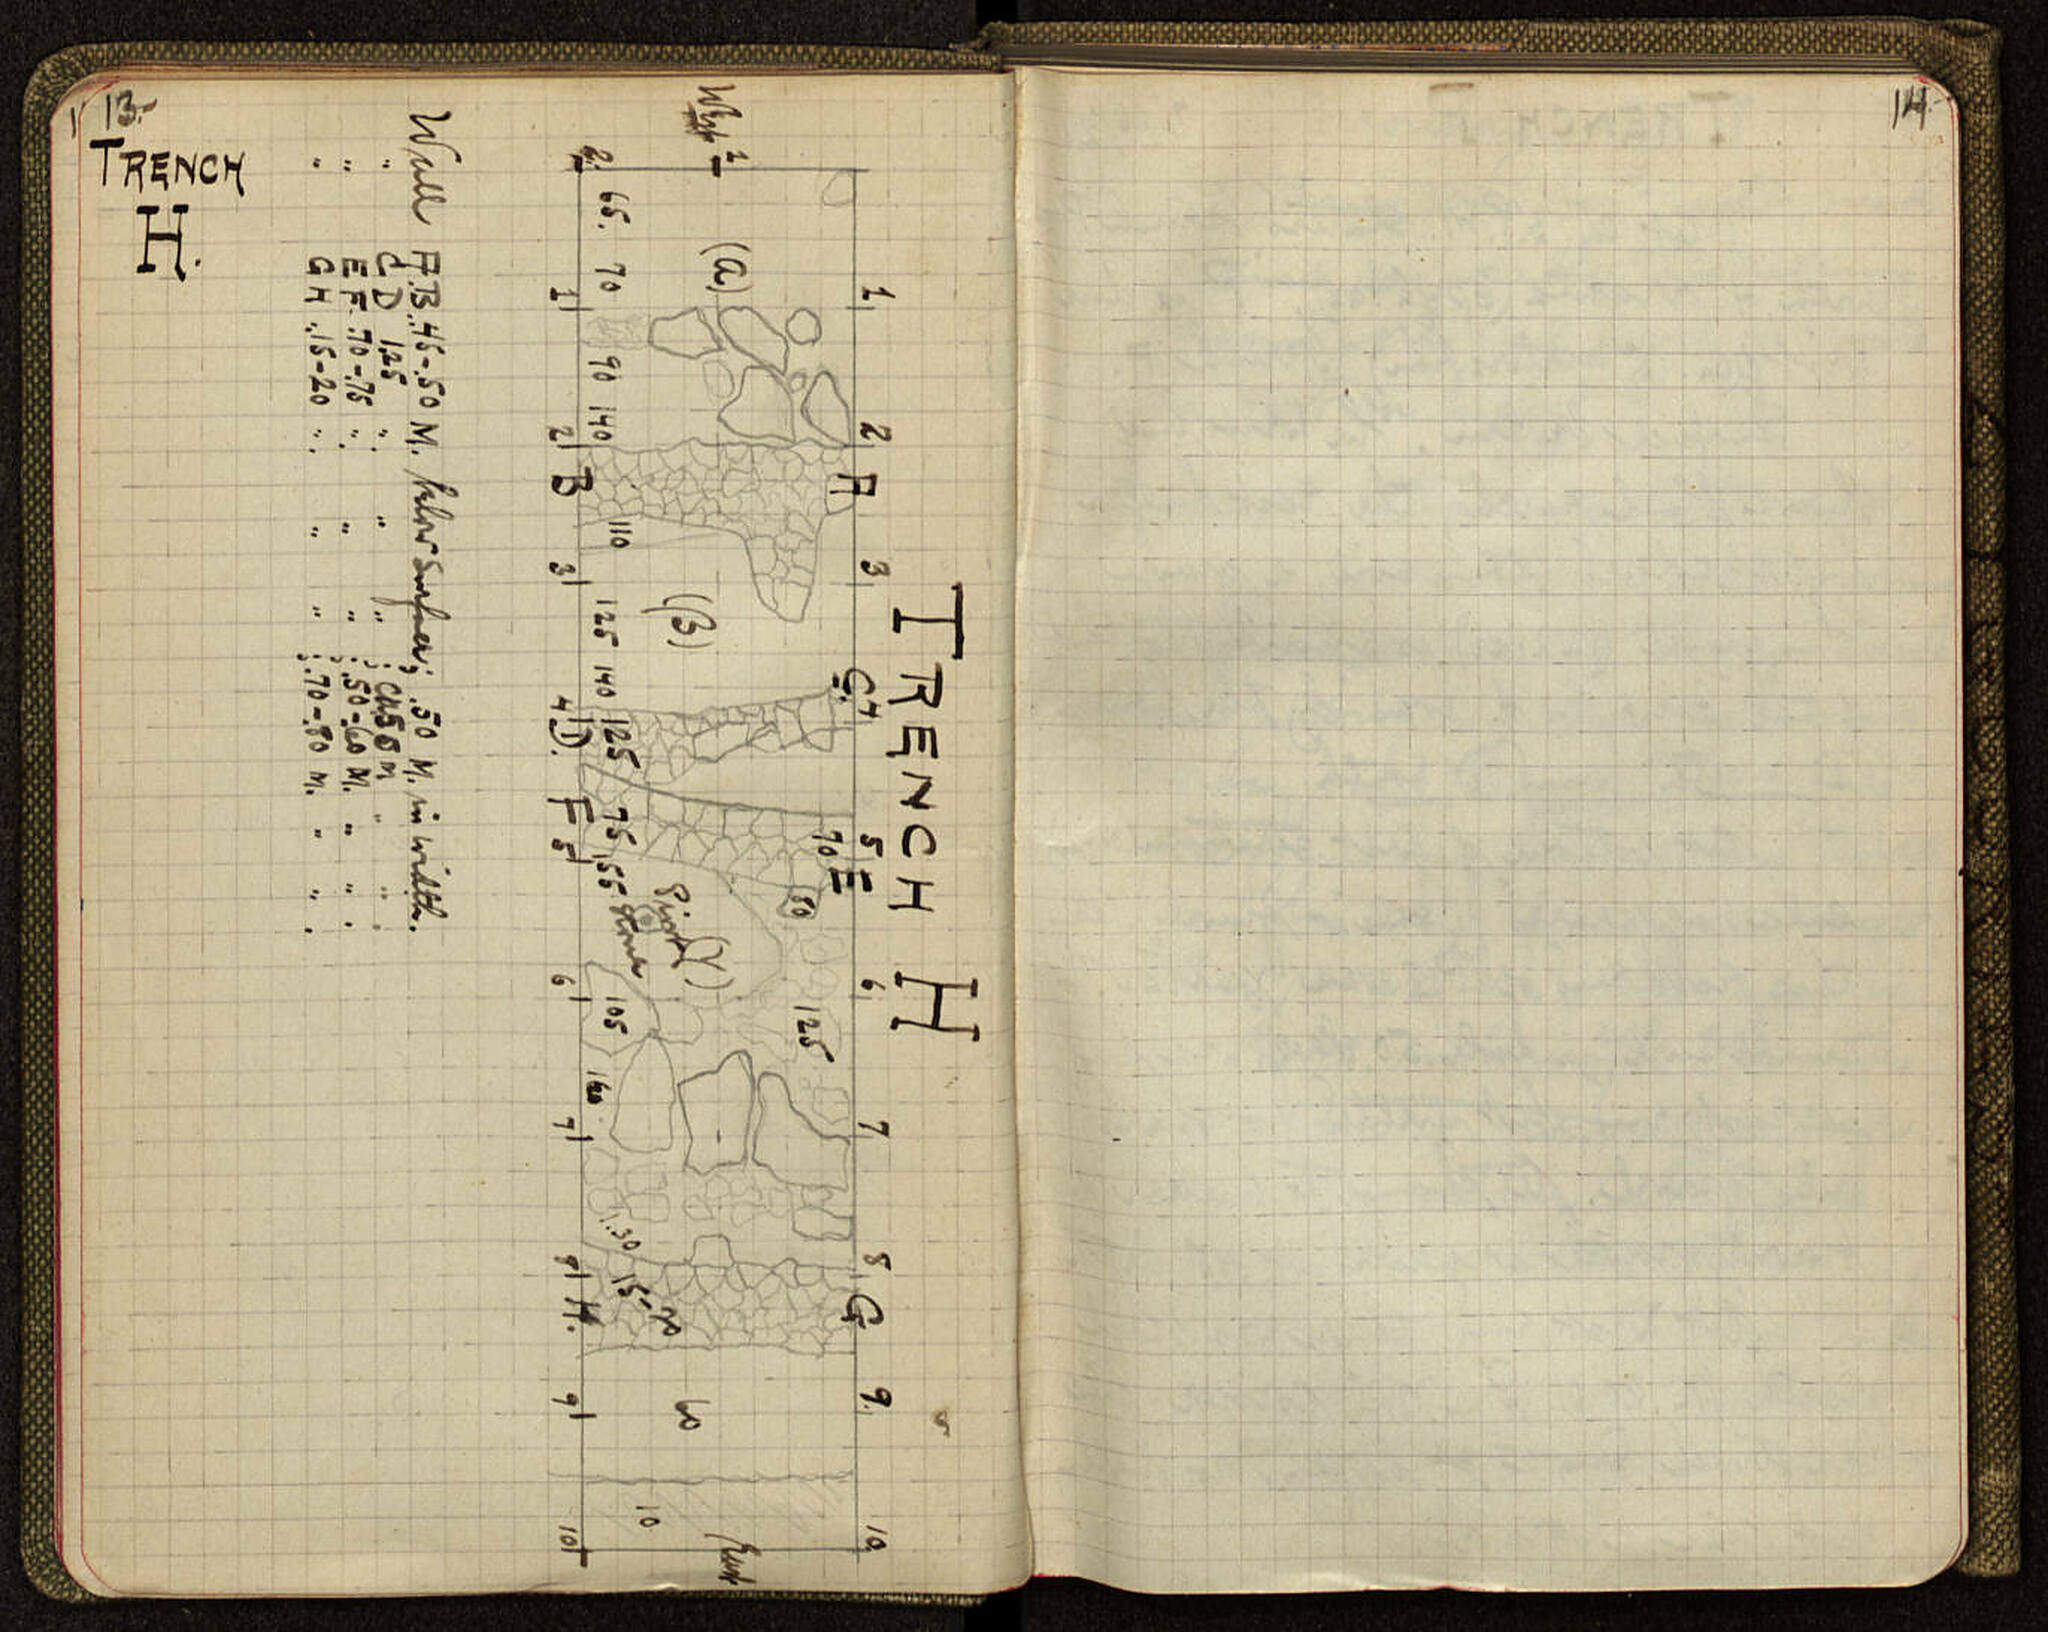 13.
TRENCH
H.
TRENCH H
1 2 3 4 5 6 7 8 9. 10.
A C. E G
70 50 125
West 1
(a) (β) (γ)
Pivot
stone
60
10
East
2. 65. 70 90 140 110 125 140 125 75 55 105 160. 1.30 15-70
1 2 B 3 4 D. F 5 6 7 8 H. 9 10
Wall A.B. .45-.50 M. below surface; .50 M. in width.
" C D 1.25 " " " ; M " " .
" E F. .70-.75 " " " ; .50-.60 M. " " .
" G H .15-20 " " " ; .70-.80 M. " " .
14.